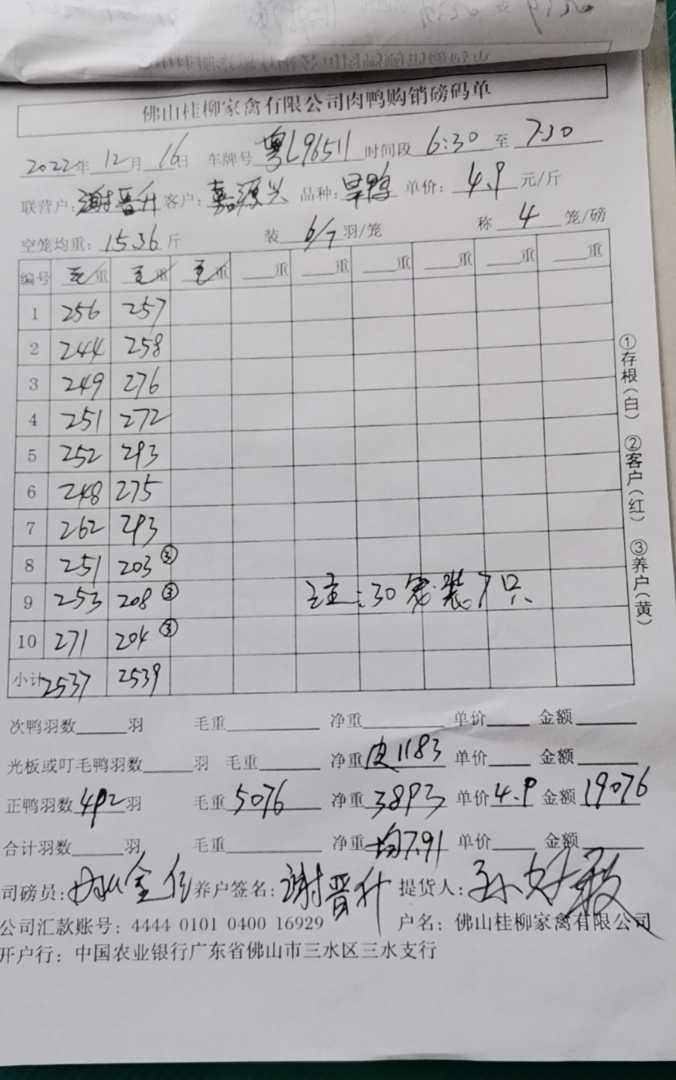 佛山桂柳家禽有限公司肉鸭购销磅码单
2022年 12月 16日 车牌号 粤L96511 时间段 6:30 至 7:30
联营户: 谢晋升 客户: 嘉源兴 品种: 旱鸭 单价: 4.9 元/斤
空笼均重: 15.36 斤 装 6/7 羽/笼 称 4 笼/磅
编号 毛重 毛重 毛重 重 重 重 重 重
1 256 257
2 244 258
3 249 276
4 251 272
5 252 293
6 248 275
7 262 293
8 251 203 ③
9 253 208 ③
10 271 204 ③
注: 30笼装7只
小计 2537 2539
次鸭羽数 羽 毛重 净重 单价 金额
光板或叮毛鸭羽数 羽 毛重 净重 皮1183 单价 金额
正鸭羽数 492 羽 毛重 5076 净重 3893 单价 4.9 金额 19076
合计羽数 羽 毛重 净重 均7.91 单价 金额
司磅员: 养户签名: 谢晋升 提货人:
公司汇款账号: 4444 0101 0400 16929 户名: 佛山桂柳家禽有限公司
开户行: 中国农业银行广东省佛山市三水区三水支行
①存根(白) ②客户(红) ③养户(黄)